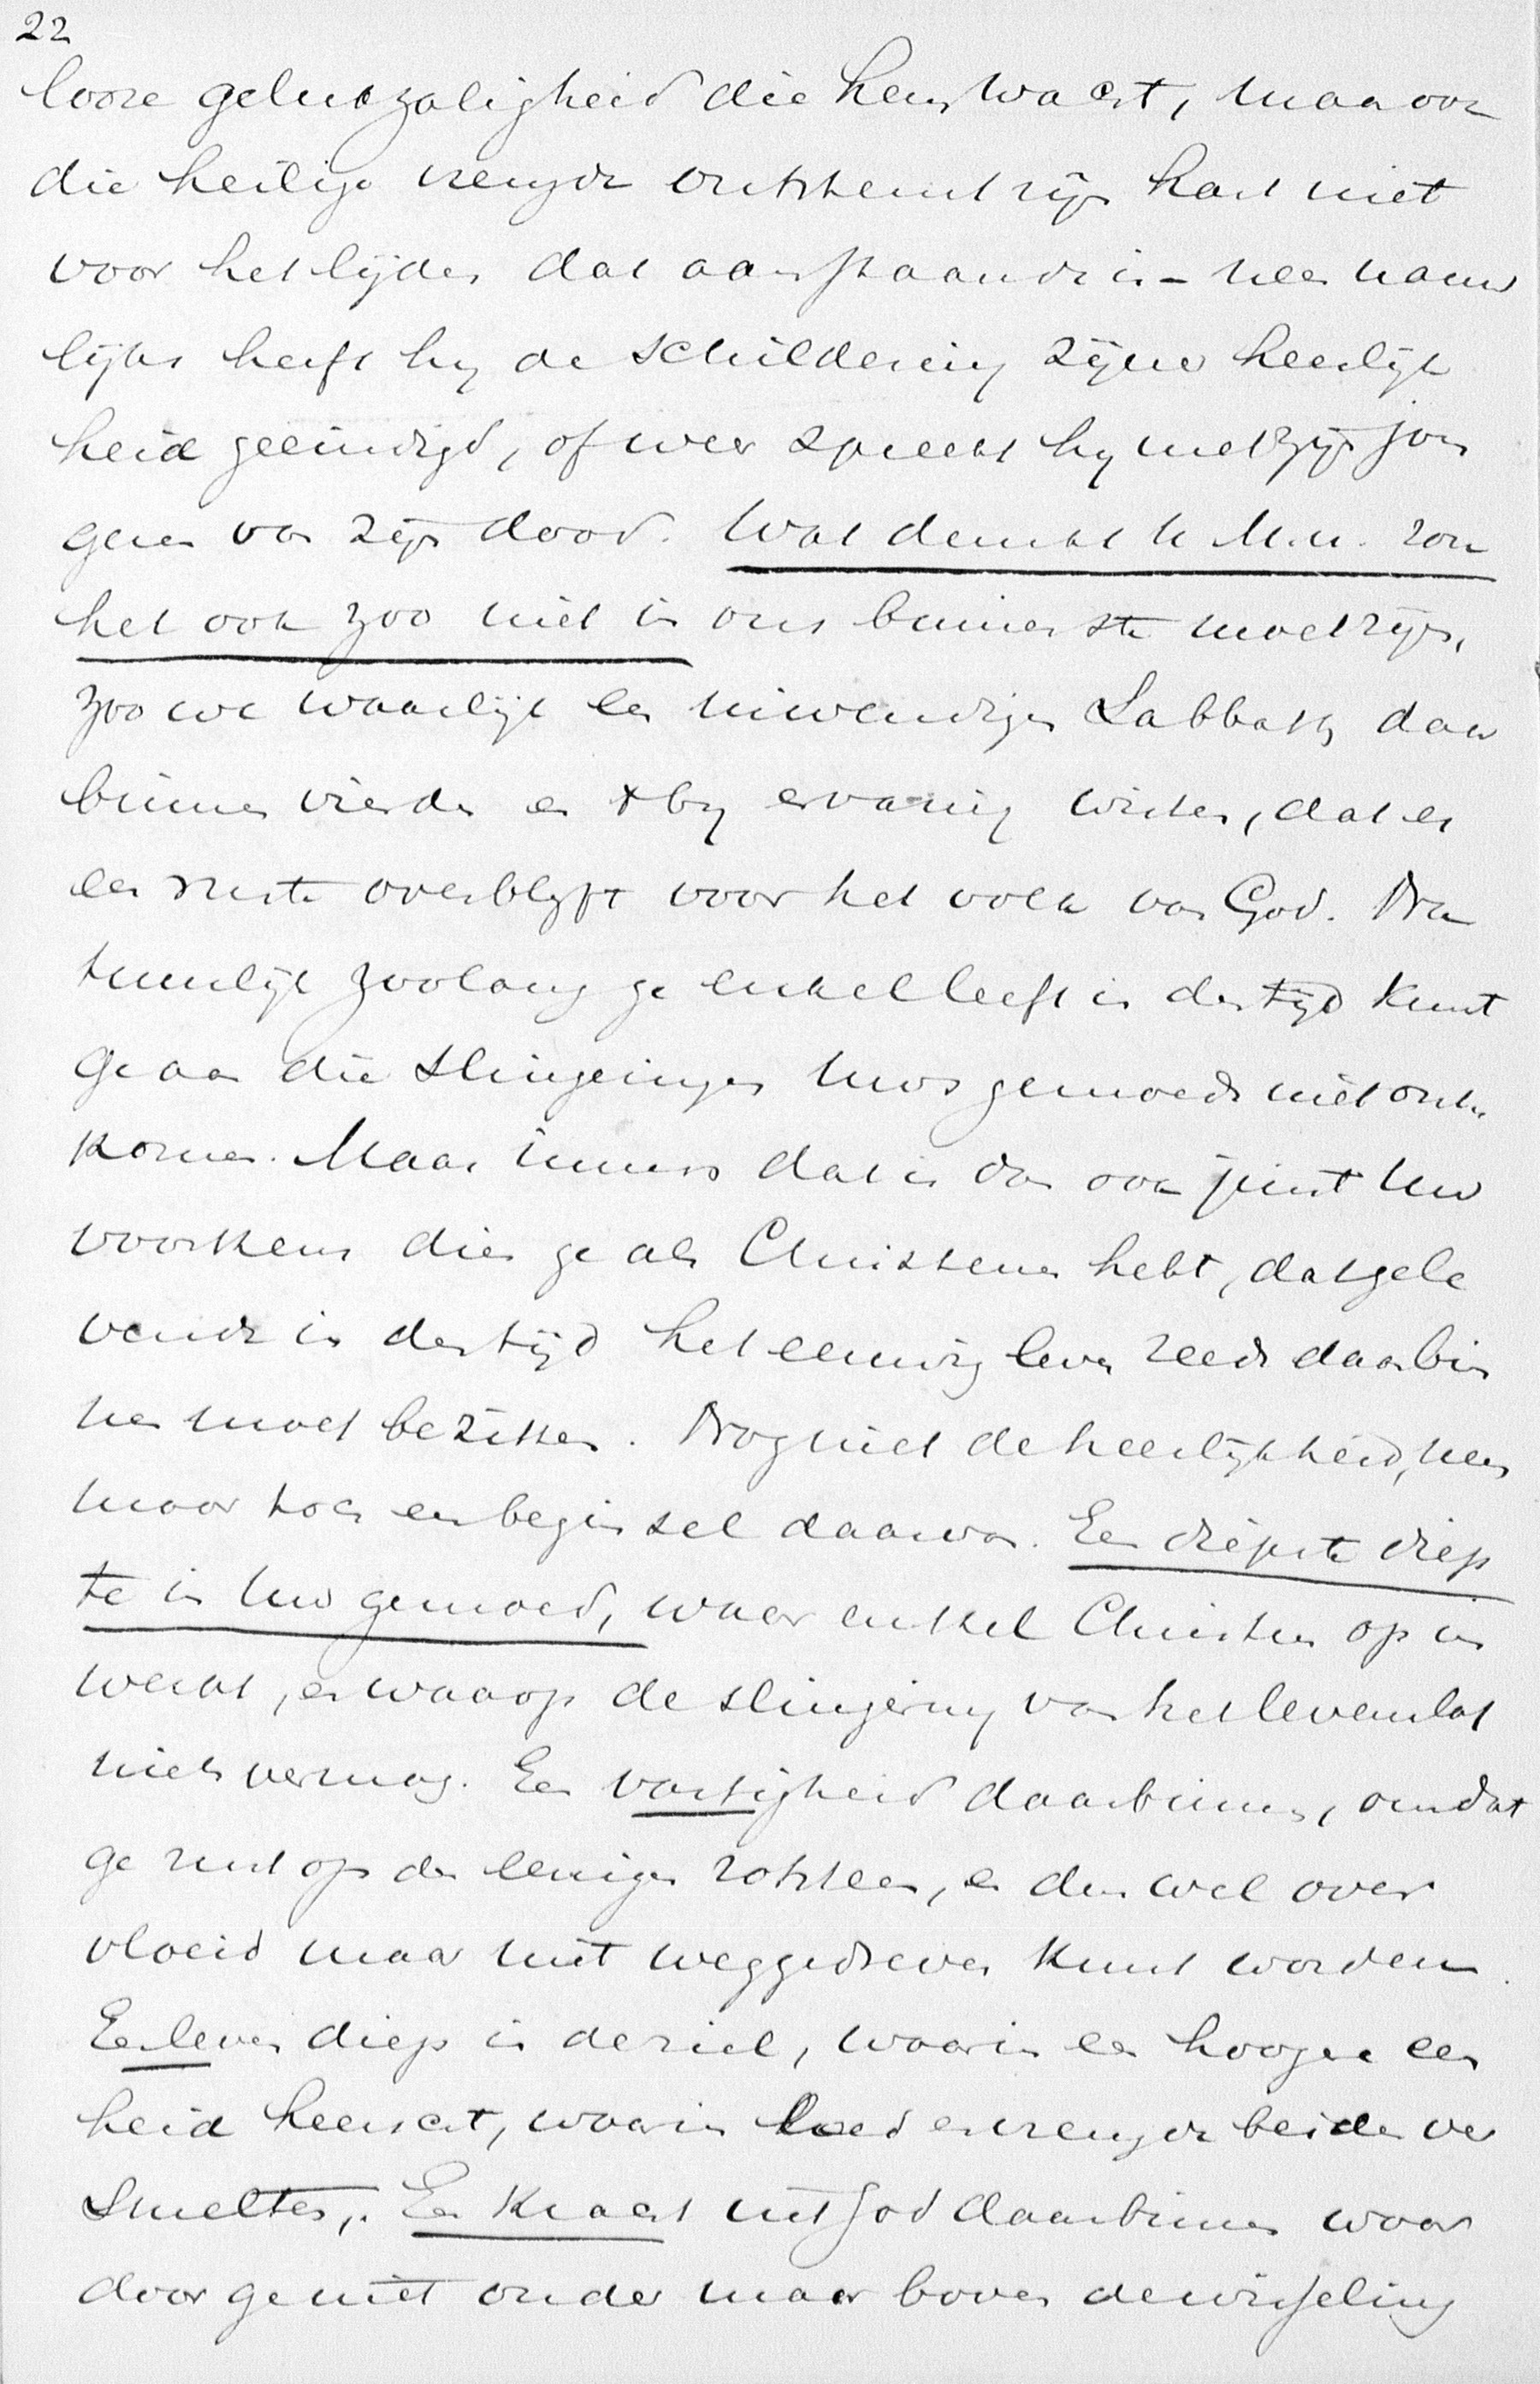 22
looze gelukzaligheid die hem wacht, maar ook
die heilige vreugde ontstemt zijn hart niet
voor het lijden dat aanstaande is - nee nauw
lijks heeft hij de schildering zijner heerlijk
heid geëindigd, of weer spreekt hij met zijn jon
geren van zijn dood. Wat denkt u M.u. zou
het ook zoo niet in ons binnenste moet zijn,
zoo we waarlijk een inwendigen Sabbath daar
binnen vierden en bij ervaring wisten, dat er
een ruste overblijft voor het volk van God. Na
tuurlijk zoolang ge enkel leeft in den tijd kunt
ge aan die slingeringen uws gemoeds niet ont
komen. Maar immers dat is dan ook juist uw
voorkeur die ge als Christenen hebt, dat ge le
vende in den tijd het eeuwig leven reeds daarbin
nen moet bezitten. Nog niet de heerlijkheid, neen
maar toch een beginsel daarvan. Een diepste diep
te in uw gemoed, waar enkel Christus op in
werkt, en waarop de slingering van het levenslot
niets vermag. Een vastigheid daarbinnen, omdat
ge rust op den eenigen rotssteen, en dus wel over
vloeid maar niet weggedreven kunt worden.
Een leven diep in de ziel, waarin een hooger een
heid heerscht, waarin leed en vreugde beiden ver
smelten,. Een kracht uit God daarbinnen waar
door ge niet onder maar boven de wisseling